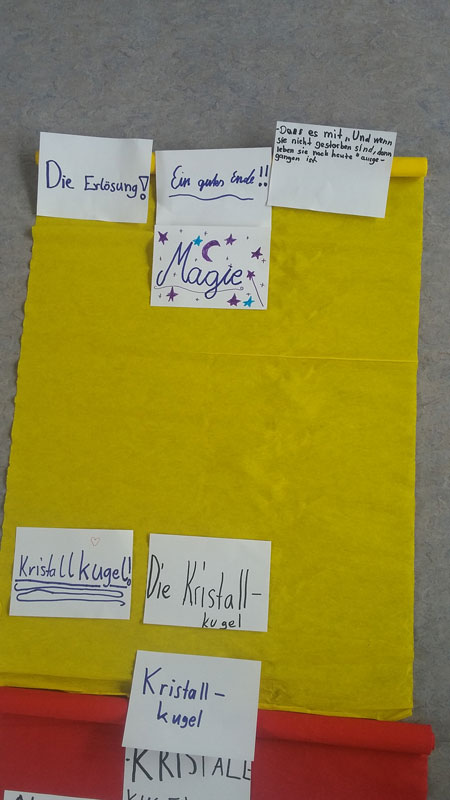 Die Erlösung!
Ein gutes Ende!!
-Dass es mit „Und wenn
sie nicht gestorben sind, dann
leben sie noch heute" ausge-
gangen ist
Magie
Kristallkugel!
Die Kristall-
kugel
Kristall-
kugel